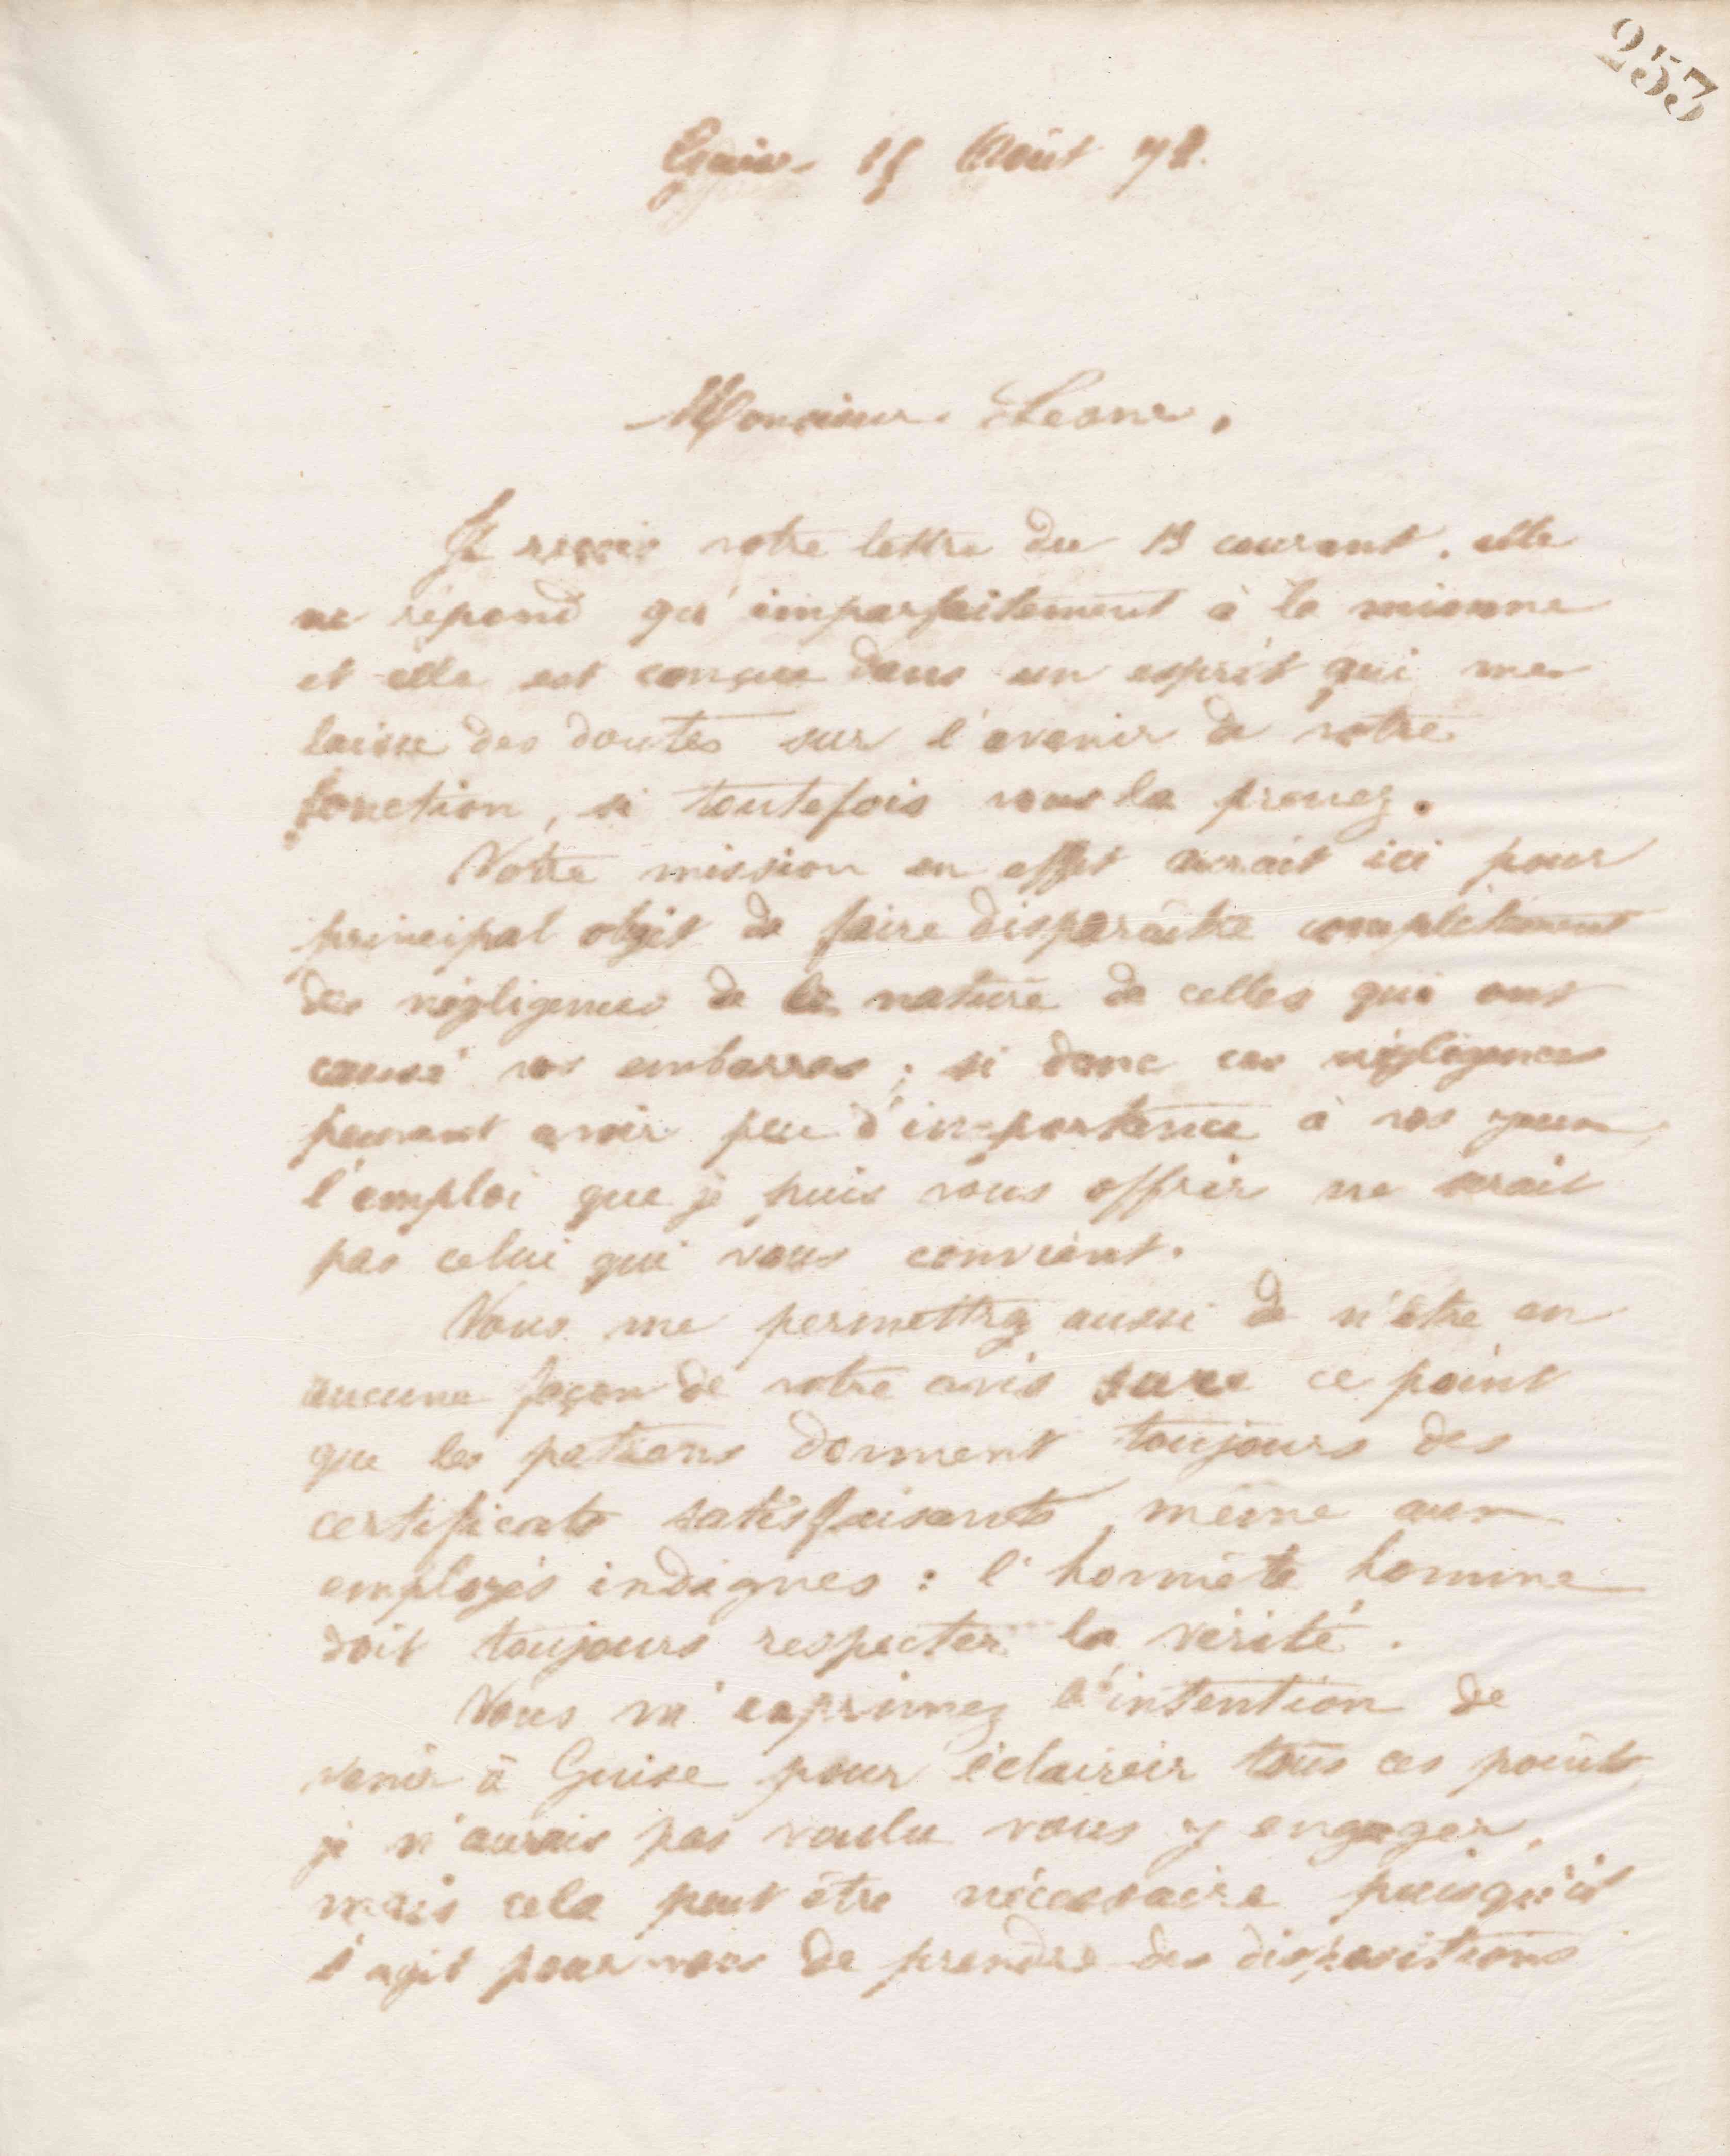 253
Guise 15 Août 78.
Monsieur
Je reçois votre lettre du 13 courant. elle
ne répond qu'imparfaitement à la mienne
et elle est conçue dans un esprit qui me
laisse des doutes sur l'avenir de votre
fonction, si toutefois vous la prenez.
Votre mission en effet aurait ici pour
principal objet de faire disparaître complètement
des négligences de la nature de celles qui ont
causé vos embarras ; si donc ces négligences
peuvent avoir peu d'importance à vos yeux,
l'emploi que je puis vous offrir ne serait
pas celui qui vous convient.
Vous me permettrez aussi de n'être en
aucune façon de votre avis sur ce point
que les patrons donnent toujours des
certificats satisfaisants même aux
employés indignes : l'honnête homme
doit toujours respecter la vérité.
Vous m'exprimez l'intention de
venir à Guise pour éclaircir tous ces points
je n'aurais pas voulu vous y engager,
mais cela peut être nécessaire puisqu'il
s'agit pour vous de prendre des dispositions